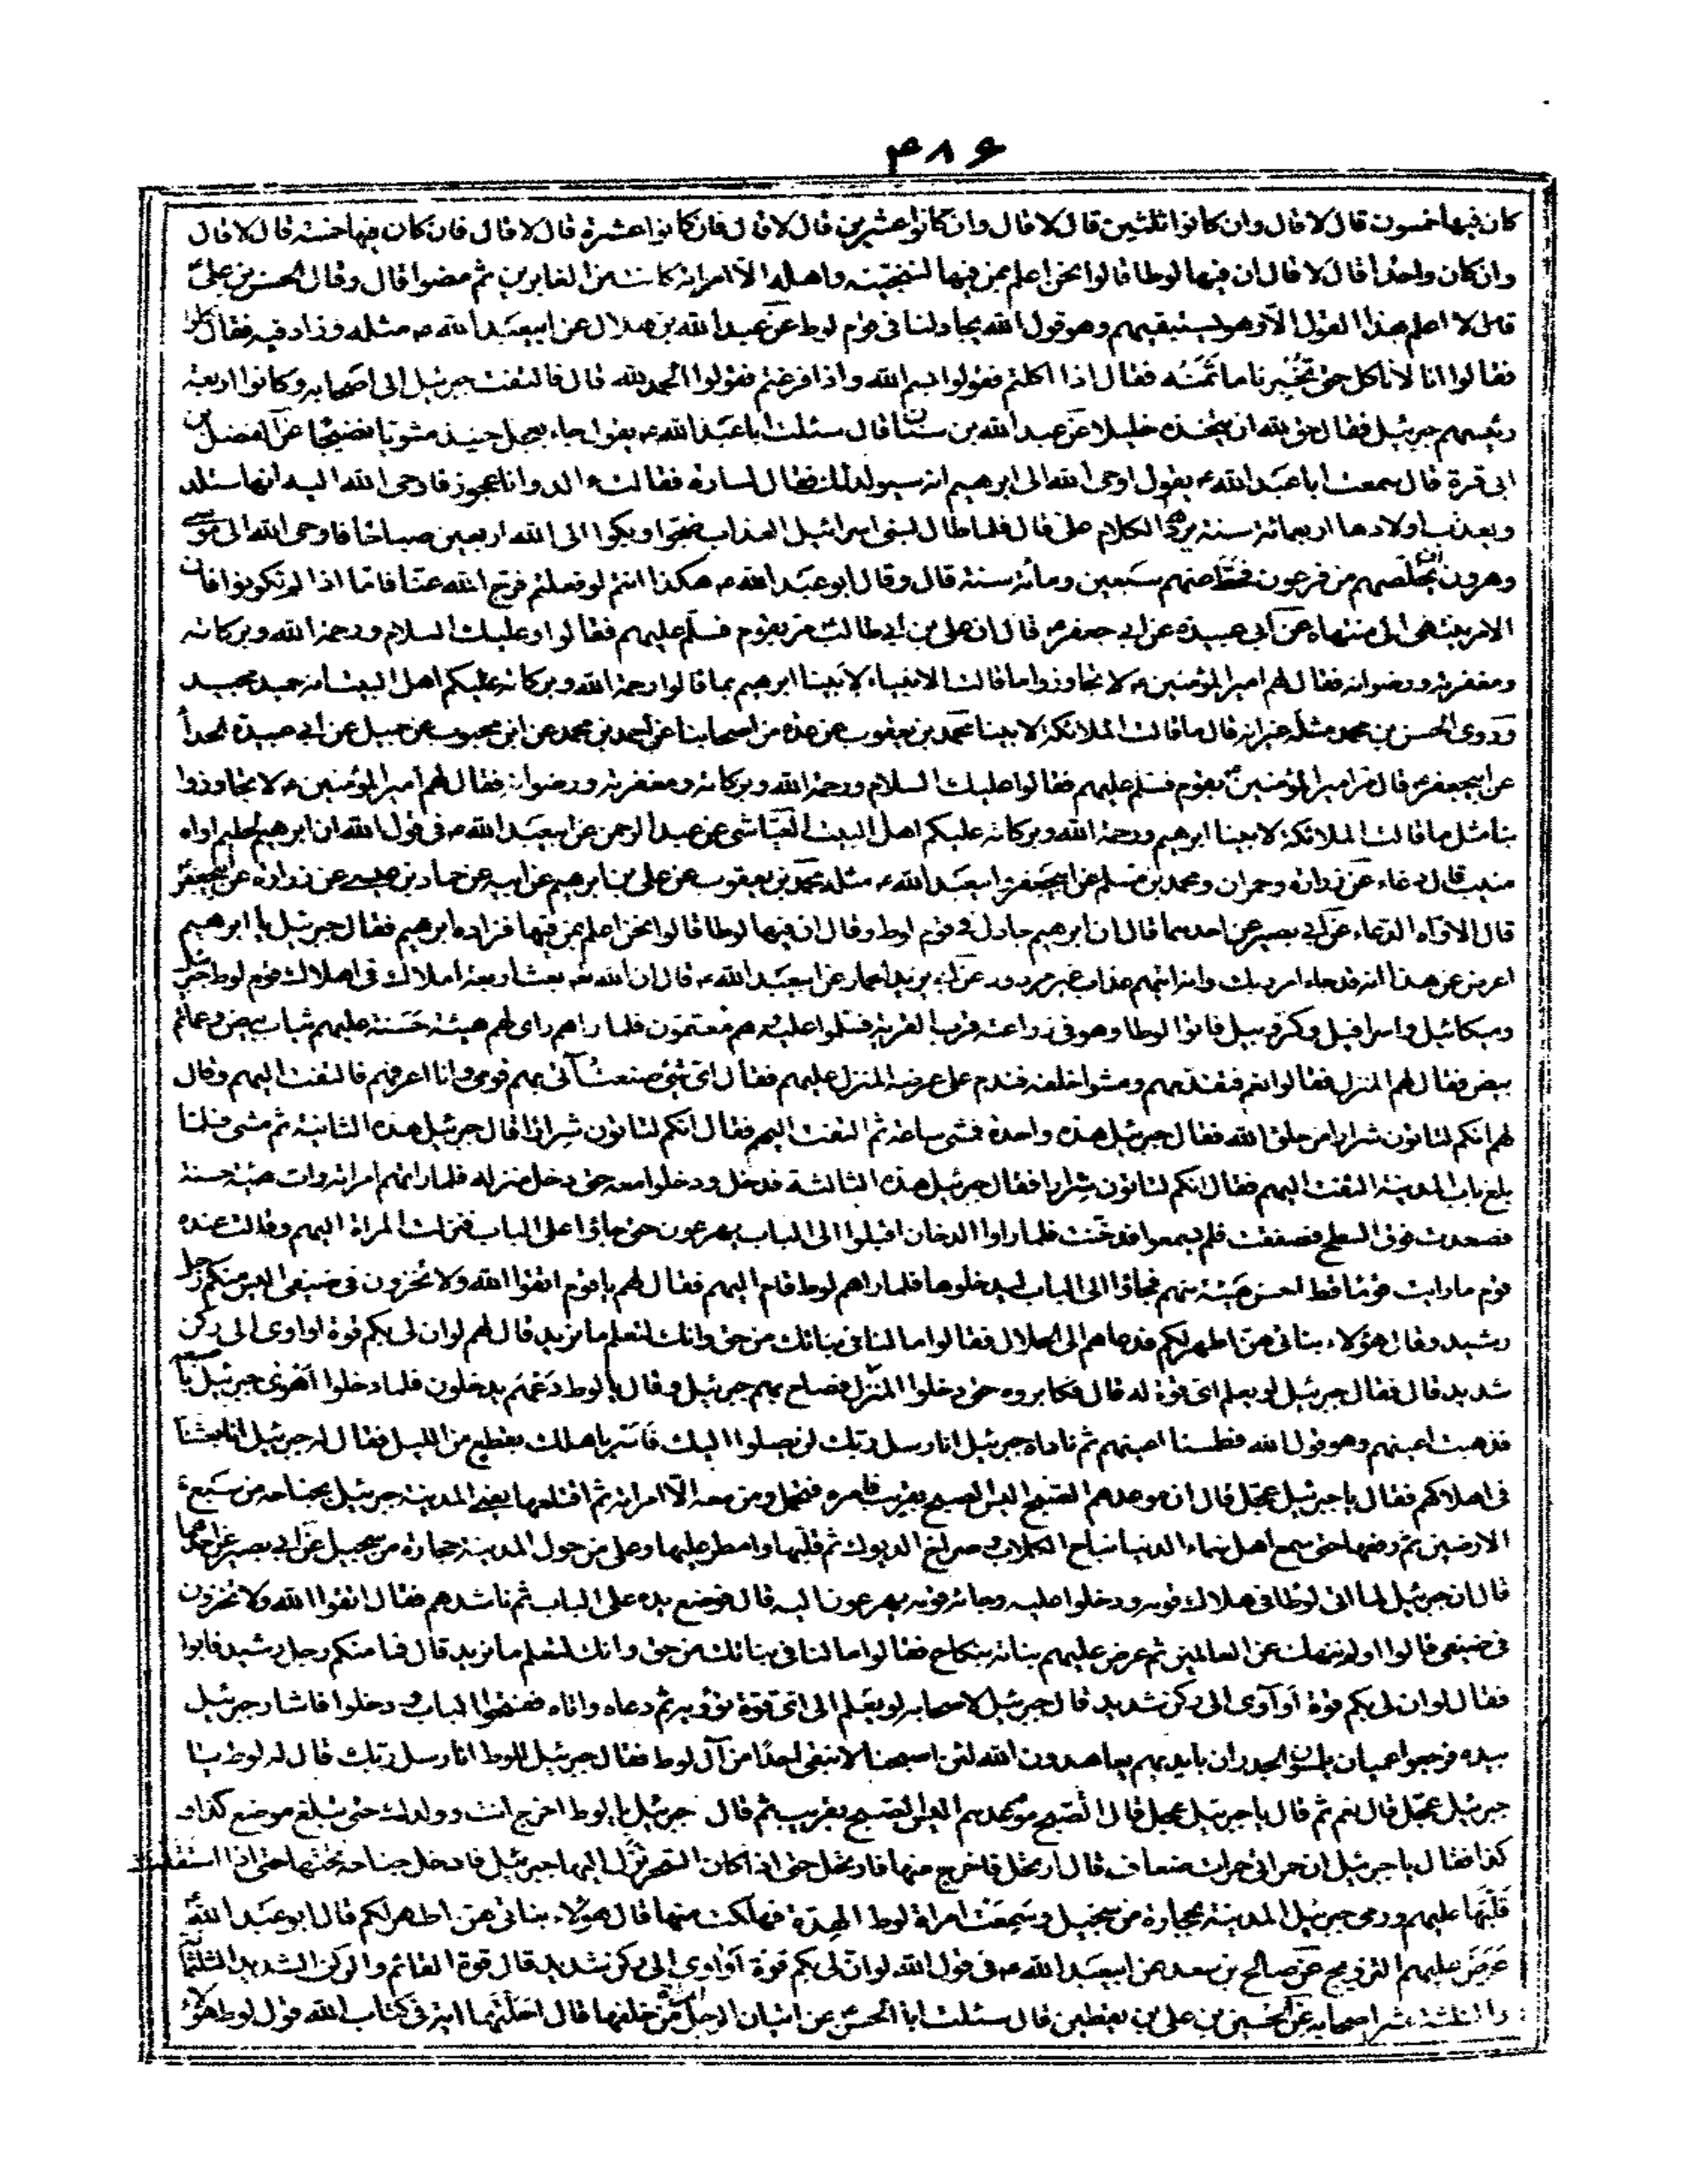 ۴۸۶
كان فيها خمسون قال لا قال وان كانوا ثلثين قال لا قال وان كانوا عشرين قال لا قال فان كانوا عشرة قال لا قال فان كان فيها خمسة قال لا قال
وان كان واحدا قال لا قال ان فيها لوطا قالوا نحن اعلم بمن فيها لننجينه واهله الا امراته كانت من الغابرين ثم مضوا قال وقال الحسن بن علي
لا اعلم هذا القول الا وهو يستبقيهم وهو قول الله يجادلنا في قوم لوط عن عبد الله بن هلال عن ابيعبد الله ع مثله وزاد فيه فقال كلوا
فقالوا انا لا ناكل حتى تخبرنا ما ثمنه فقال اذا اكلتم فقولوا بسم الله واذا فرغتم فقولوا الحمد لله قال فالتفت جبرئيل الى اصحابه وكانوا اربعة
رئيسهم جبرئيل فقال حق لله ان يتخذه خليلا عن عبد الله بن سنان قال سئلت ابا عبد الله ع يقول جاء بعجل حنيذ مشويا نضيجا عن الفضل بن
ابي قرة قال سمعت ابا عبد الله ع يقول اوحى الله الى ابرهيم انه سيولد لك فقال لسارة فقالت ءالد وانا عجوز فاوحى الله اليه انها ستلد
ويعذب اولادها اربعمائة سنة بردها الكلام على قال فلما طال لبني اسرائيل العذاب ضجوا وبكوا الى الله اربعين صباحا فاوحى الله الى موسى
وهرون ان يخلصهم من فرعون فحط عنهم سبعين ومائة سنة قال وقال ابو عبد الله ع هكذا انتم لو فعلتم فرج الله عنا فاما اذا لم تكونوا فان
الامر ينتهي الى منتهاه عن ابي عبيدة عن ابي جعفر ع قال ان علي بن ابي طالب مر بقوم فسلم عليهم فقالوا وعليك السلام ورحمة الله وبركاته
ومغفرته ورضوانه فقال لهم امير المؤمنين ع لا تجاوزوا ما قالت الانبياء لابينا ابرهيم بما قالوا رحمة الله وبركاته عليكم اهل البيت انه حميد مجيد
وروى الحسن بن محمد مثله غير انه قال ما قالت الملائكة لابينا محمد بن يعقوب عن عدة من اصحابنا عن احمد بن محمد عن ابن محبوب عن جميل عن ابي عبيدة الحذا
عن ابيجعفر ع قال مر امير المؤمنين بقوم فسلم عليهم فقالوا عليك السلام ورحمة الله وبركاته ومغفرته ورضوانه فقال لهم امير المؤمنين ع لا تجاوزوا
بنا مثل ما قالت الملائكة لابينا ابرهيم ورحمة الله وبركاته عليكم اهل البيت العياشي عن عبد الرحمن عن ابيعبد الله ع في قول الله ان ابرهيم لحليم اواه
منيب قال دعاء عن زرارة وحمران ومحمد بن مسلم عن ابيجعفر وابيعبد الله ع مثله محمد بن يعقوب عن علي بن ابرهيم عن ابيه عن حماد بن عيسى عن زرارة عن ابيجعفر
قال الاواه الدعاء عن ابي بصير عن احدهما قال ان ابرهيم جادل في قوم لوط وقال ان فيها لوطا قالوا نحن اعلم بمن فيها فزاده ابرهيم فقال جبرئيل يا ابرهيم
اعرض عن هذا انه قد جاء امر ربك وانه اتيهم عذاب غير مردود عن ابي يزيد الحمار عن ابيعبد الله ع قال ان الله بعث اربعة املاك في اهلاك قوم لوط جبرئيل
وميكائيل واسرافيل وكروبيل فاتوا لوطا وهو في زراعة قرب القرية فسلموا عليه وهم معتمون فلما راهم راى لهم هيئة حسنة عليهم ثياب بيض وعمائم
بيض فقال لهم المنزل فقالوا نعم فتقدمهم ومشوا خلفه فندم على عرضه المنزل عليهم فقال اي شئ صنعت اتي بهم قومي وانا اعرفهم فالتفت اليهم وقال
لهم انكم لتاتون شرارا من خلق الله فقال جبرئيل هذه واحدة فمشى ساعة ثم التفت اليهم فقال انكم لتاتون شرارا فقال جبرئيل هذه الثانية ثم مشى فلما
بلغ باب المدينة التفت اليهم فقال انكم لتاتون شرارا فقال جبرئيل هذه الثالثة فدخل ودخلوا معه حتى دخل منزله فلما راتهم امراته رات هيئة حسنة
فصعدت فوق السطح فصفقت فلم يسمعوا فدخنت فلما راوا الدخان اقبلوا الى الباب يهرعون حتى جاؤا على الباب فنزلت المراة اليهم وقالت عنده
قوم ما رايت قوما قط احسن هيئة منهم فجاؤا الى الباب ليدخلوها فلما راهم لوط قام اليهم فقال لهم يا قوم اتقوا الله ولا تخزون في ضيفي اليس منكم رجل
رشيد وقال هؤلاء بناتي هن اطهر لكم فدعاهم الى الحلال فقالوا ما لنا في بناتك من حق وانك لتعلم ما نريد قال لهم لو ان لي بكم قوة او اوى الى ركن
شديد قال فقال جبرئيل لو يعلم اي قوة له قال فكابروه حتى دخلوا المنزل فصاح بهم جبرئيل وقال يا لوط دعهم يدخلون فلما دخلوا اهوى جبرئيل باصبعه
فذهبت اعينهم وهو قول الله فطمسنا اعينهم ثم ناداه جبرئيل انا رسل ربك لن يصلوا اليك فاسر باهلك بقطع من الليل فقال له جبرئيل انا بعثنا
في اهلاكهم فقال يا جبرئيل عجل قال ان موعدهم الصبح اليس الصبح بقريب فامره فتحمل ومن معه الا امراته ثم اقتلعها يعني المدينة جبرئيل بجناحه من سبعة
الارضين ثم رفعها حتى سمع اهل سماء الدنيا نباح الكلاب وصراخ الديوك ثم قلبها وامطر عليها وعلى من حول المدينة حجارة من سجيل عن ابي بصير عن احدهما
قال ان جبرئيل لما اتى لوطا في هلاك قومه ودخلوا عليه وجائه قومه يهرعون اليه قال فوضع يده على الباب ثم ناشدهم فقال اتقوا الله ولا تخزون
في ضيفي قالوا اولم ننهك عن العالمين ثم عرض عليهم بناته بنكاح فقالوا ما لنا في بناتك من حق وانك لتعلم ما نريد قال فما منكم رجل رشيد فابوا
فقال لو ان لي بكم قوة او آوى الى ركن شديد قال جبرئيل لاصحابه لو يعلم الى اي قوة يؤوى ثم دعاه واتاه ففتحوا الباب ودخلوا فاشار جبرئيل
بيده فرجعوا عميان يلتمسون الجدران بايديهم يعاهدون الله لئن اصبحنا لا نبقي احدا من آل لوط فقال جبرئيل للوط انا رسل ربك قال له لوط يا
جبرئيل عجل قال نعم ثم قال يا جبرئيل عجل قال الصبح موعدهم اليس الصبح بقريب ثم قال جبرئيل يا لوط اخرج انت وولدك حتى تبلغ موضع كذا و
كذا فقال يا جبرئيل ان حمراتي حمرات ضعاف قال ارتحل فاخرج منها فارتحل حتى اذا كان السحر نزل اليها جبرئيل فادخل جناحه تحتها حتى اذا استقلت
قلبها عليهم ورمى جبرئيل المدينة بحجارة من سجيل وسمعت امراة لوط الهدة فهلكت منها قال هؤلاء بناتي هن اطهر لكم قال ابو عبد الله
عرض عليهم التزويج عن صالح بن سعد عن ابيعبد الله ع في قول الله لو ان لي بكم قوة او اوى الى ركن شديد قال قوة القائم والركن الشديد الثلثمائة
والثلثة عشر اصحابه عن الحسين بن علي بن يقطين قال سئلت ابا الحسن عن اتيان الرجل المراة من خلفها قال احلتها اية في كتاب الله قول لوط هؤلاء